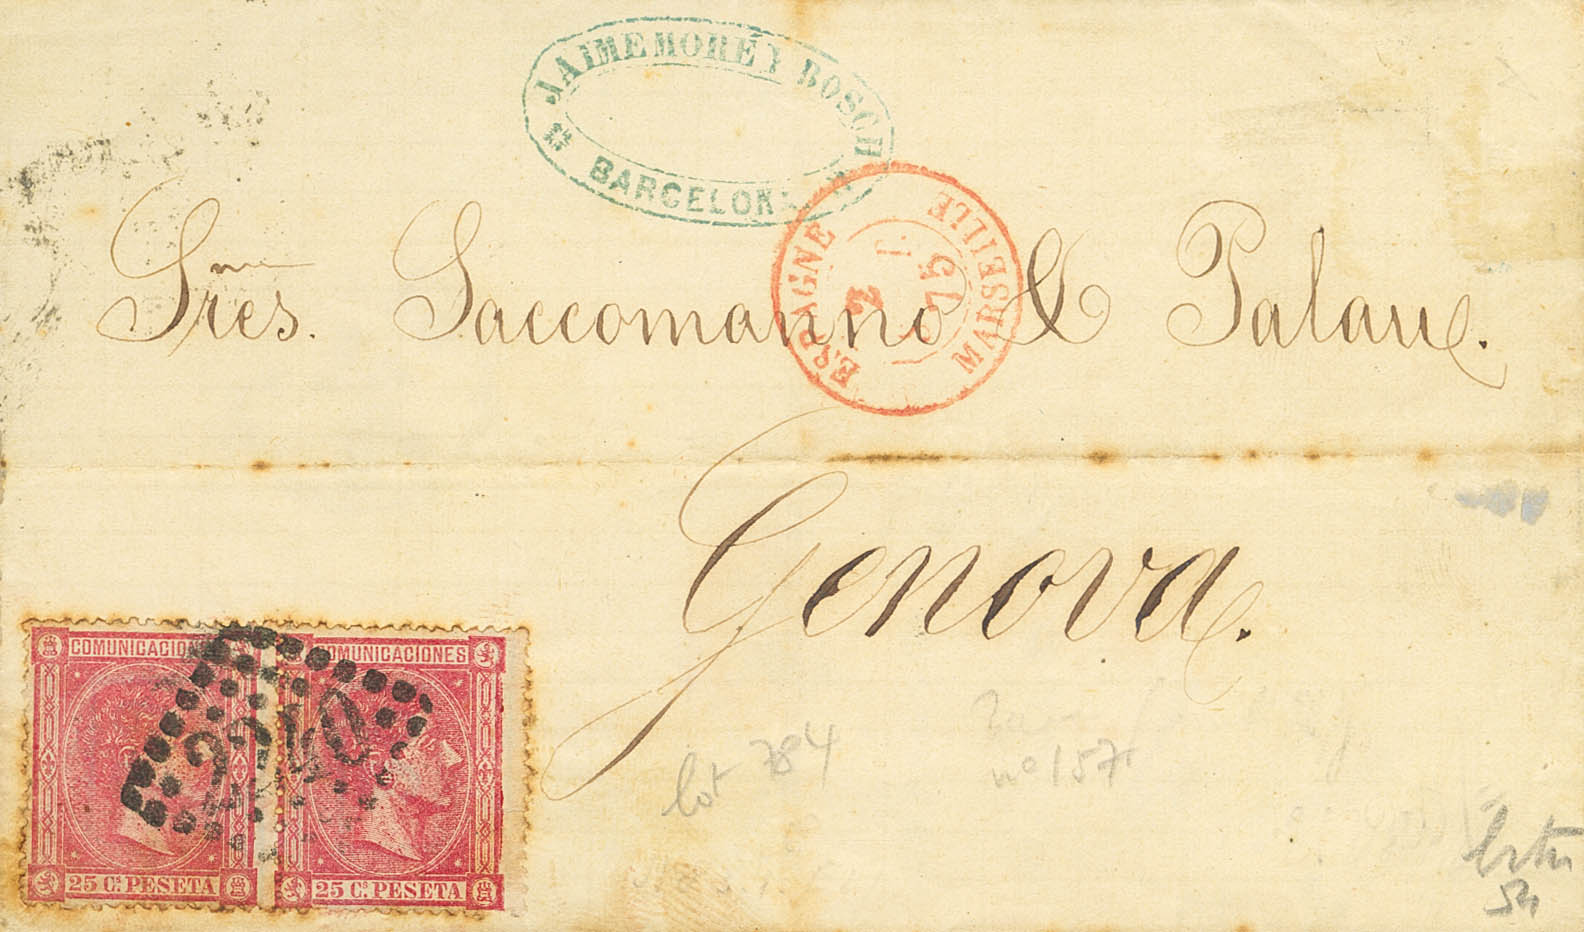 JAIME MORÉ Y BOSCH
BARCELONA
ESPAGNE MARSEILLE
Sres. Saccomanno & Palau.
Genova.
COMUNICACIONES
COMUNICACIONES
2240
25 Cs. PESETA
25 Cs. PESETA
lot 784
nº 157